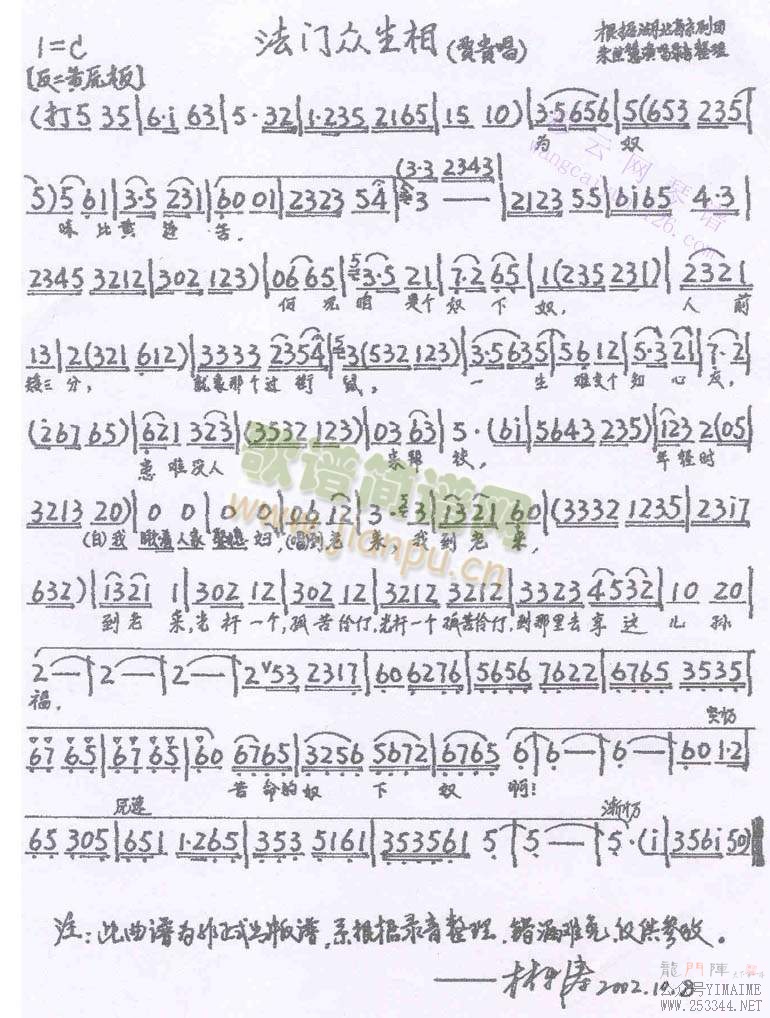 法门众生相(贾贵唱)
1=C
根据湖北省京剧团
朱世慧演唱录音整理
[反二黄原板]
(打5 35|6·i 63|5·32|1·235 2165|15 10)|3·5656|5(653 235|
为 奴
5)5 61|3·5 231|60 01|2323 54|3 — — |2123 55|6i65 4·3|
(3·3 2343|
味 比黄 连 苦。
2345 3212|302 123)|06 65|3·5 21|7·2 65|1(235 231)|2321
何 况 咱 是个 奴 下 奴, 人 前
13|2(321 612)|3333 2354|3(532 123)|3·5635|56 12|5·3 21|7·2|
矮三 分, 就象那个过 街 鼠, 一 生 难交个 知 心 友,
(2676 65)|621 323|(3532 123)|03 63|5·(6i|5643 235)|i23 2(05|
患 难没人 来帮 扶, 年轻时
3213 20)|0 0|0 0|06 12|3· 3|1321 60|(3332 1235|23i7
(白)我 人家 妇,(唱)到老 来,我到老 来,
632)|1321 1|302 12|302 12|3212 3212|3323 4532|10 20|
到老 来,光 杆 一个,孤 苦伶仃,光杆一个 孤苦伶仃,到那里去 享 这 儿 孙
2 — |2 — |2 — |2 53 2317|60 6276|5656 7622|6765 3535|
福。
突切
67 65|67 65|60 6765|3256 5672|6765 6|6 — |6 — |60 1·2|
苦命的奴 下 奴 啊!
尾速
渐切
65 305|651 1·265|353 5161|353561 5|5 — |5·(i|356i50)‖
注:此曲谱为非正式出版谱,系根据录音整理,错漏难免,仅供参攷。
2002.10.8
歌谱简谱网
www.jianpu.cn
龍門陣
公众号YIMAIME
www.253344.NET